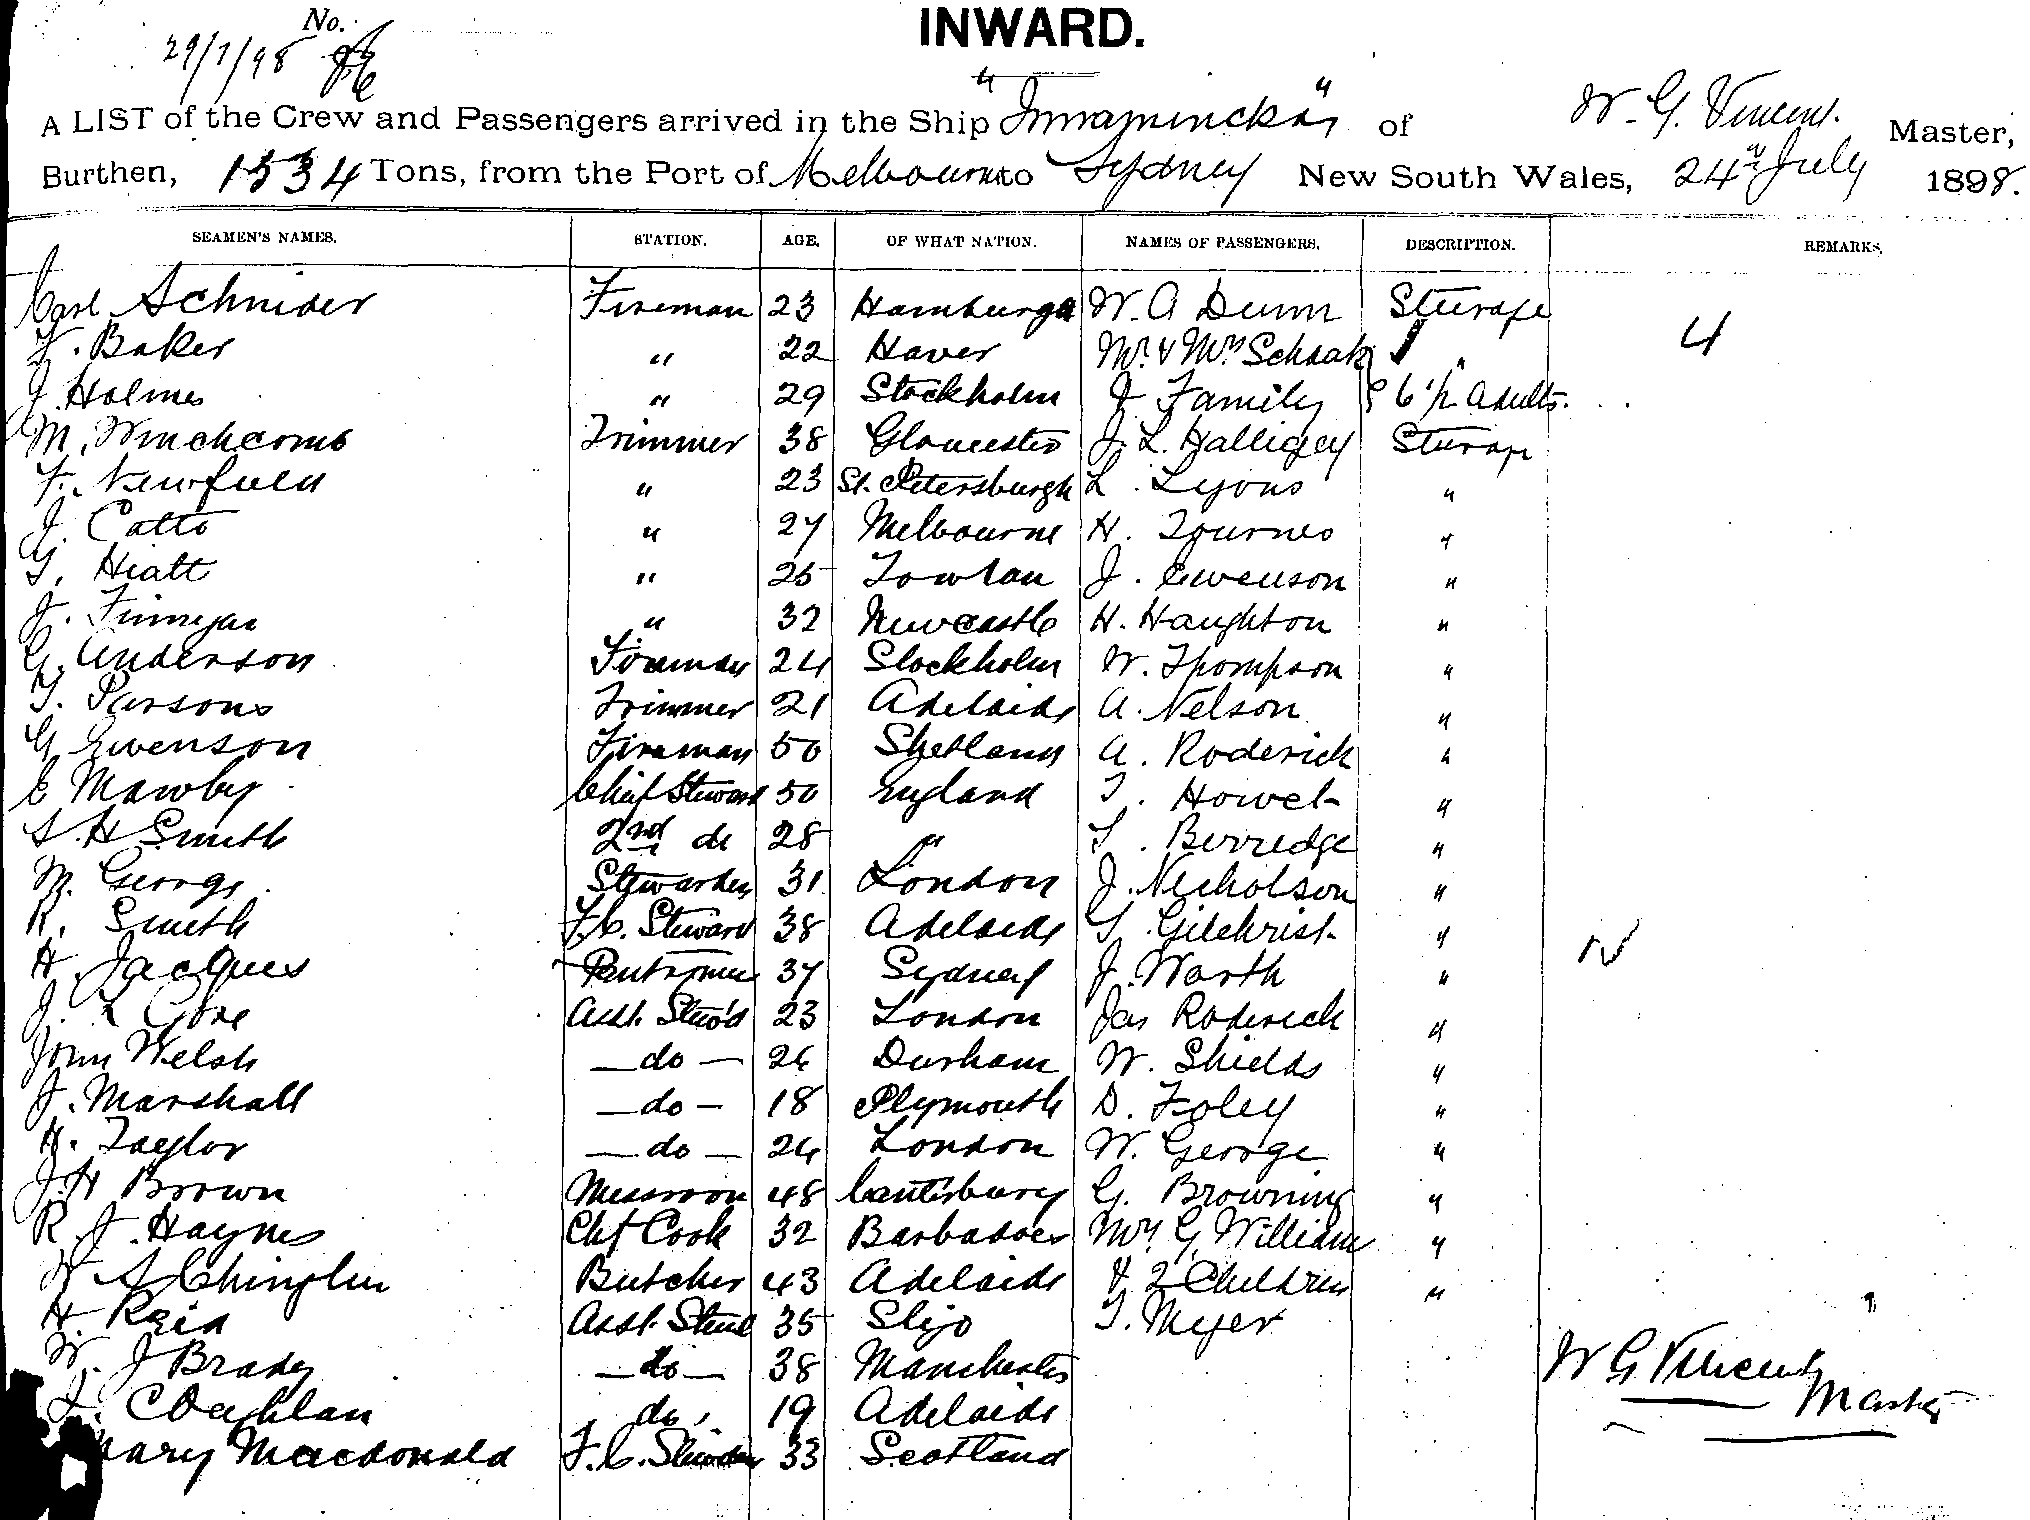 No.
29/7/98
INWARD.
A LIST of the Crew and Passengers arrived in the Ship "Innamincka" of W. G. Vincent. Master,
Burthen, 1534 Tons, from the Port of Melbourne to Sydney New South Wales, 24th July 1898.
SEAMEN'S NAMES. STATION. AGE. OF WHAT NATION. NAMES OF PASSENGERS. DESCRIPTION. REMARKS.
Carl Schnider Fireman 23 Hamburgh W. A Dunn Steerage
Baker " 22 Haver Mr. & Mrs Schaak " 4
J. Holmes " 29 Stockholm & Family 6 1/2 Adults.
M. Winchcomb Trimmer 38 Gloucester J. L. Halligey Steerage
F. Newfield " 23 St. Petersburgh L. Lyons "
J. Catto " 27 Melbourne H. Tournes "
G. Hiatt " 25 J. Ewenson "
J. Finnegan " 32 Newcastle H. Haughton "
G. Anderson Fireman 24 Stockholm W. Thompson "
T. Parsons Trimmer 21 Adelaide A. Nelson "
G Ewenson Fireman 50 Shetland A. Roderick "
E Mawby Chief Steward 50 England T. Howel "
S. H Smith 2nd do 28 " T. Berredge "
M. George Stewardess 31 London J. Nicholson "
R. Smith F.C. Steward 38 Adelaide T Gilchrist "
H Jacques Pantryman 37 Sydney J. Warth "
J. Gore Asst. Stew'd 23 London Jas Roderick "
John Welsh — do — 26 Durham W. Shields "
J. Marshall — do — 18 Plymouth D. Foley "
H. Taylor — do — 24 London W. George "
J. H Brown Messroom 48 Canterbury G. Browning "
R. J. Haynes Chf Cook 32 Barbadoes Mrs G. William "
Butcher 43 Adelaide & 2 Children "
H. Reid Asst. Stew 35 Sligo T. Myer
W. J Brady — do — 38 Manchester W G Vincent
Coghlan do, 19 Adelaide Master
Mary Macdonald F. C. Stewardess 33 Scotland